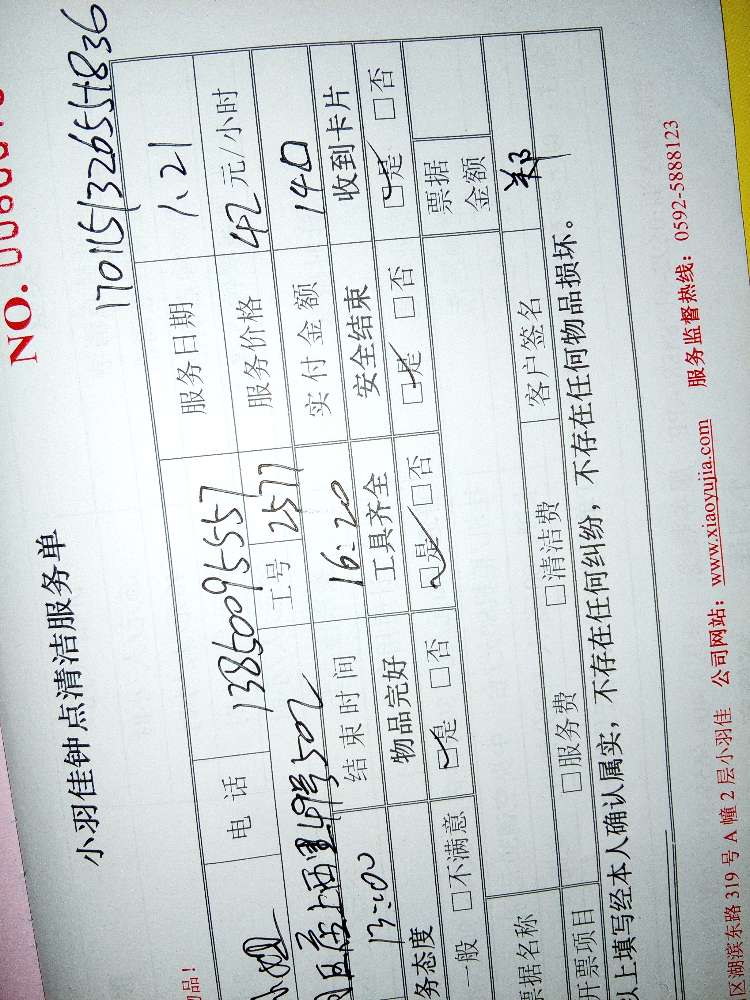 NO.
小羽佳钟点清洁服务单
1701151326554836
电话 13850095557 服务日期 1.21
502 工号 2577 服务价格 42元/小时
13:00 结束时间 16:20 实付金额 140
务态度 物品完好 工具齐全 安全结束 收到卡片
一般 □不满意 □是 □否 □是 □否 □是 □否 □是 □否
票据名称 票据金额
开票项目 □服务费 □清洁费 客户签名 郑
以上填写经本人确认属实，不存在任何纠纷，不存在任何物品损坏。
区湖滨东路319号A幢2层小羽佳 公司网站：www.xiaoyujia.com 服务监督热线：0592-5888123
物品！